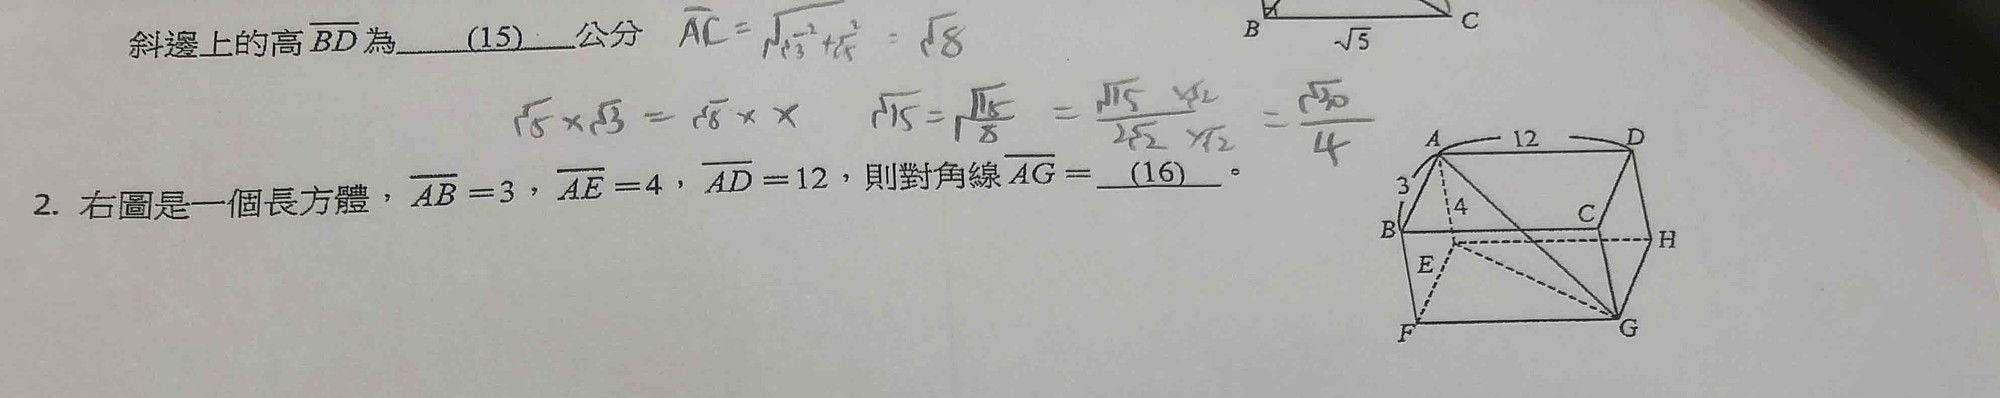 斜邊上的高BD為 (15) 公分 AC=√(√3²+√5²) = √8
B √5 C
√5×√3=√8×x √15=√(15/8) = √15×√2/2√2×√2 = √30/4
2. 右圖是一個長方體，AB=3，AE=4，AD=12，則對角線AG= (16) 。
A 12 D
3
4
B C
E H
F G